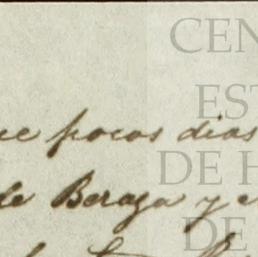 CEN
EST
ue pocos dias
DE H
de Beraza y e
DE